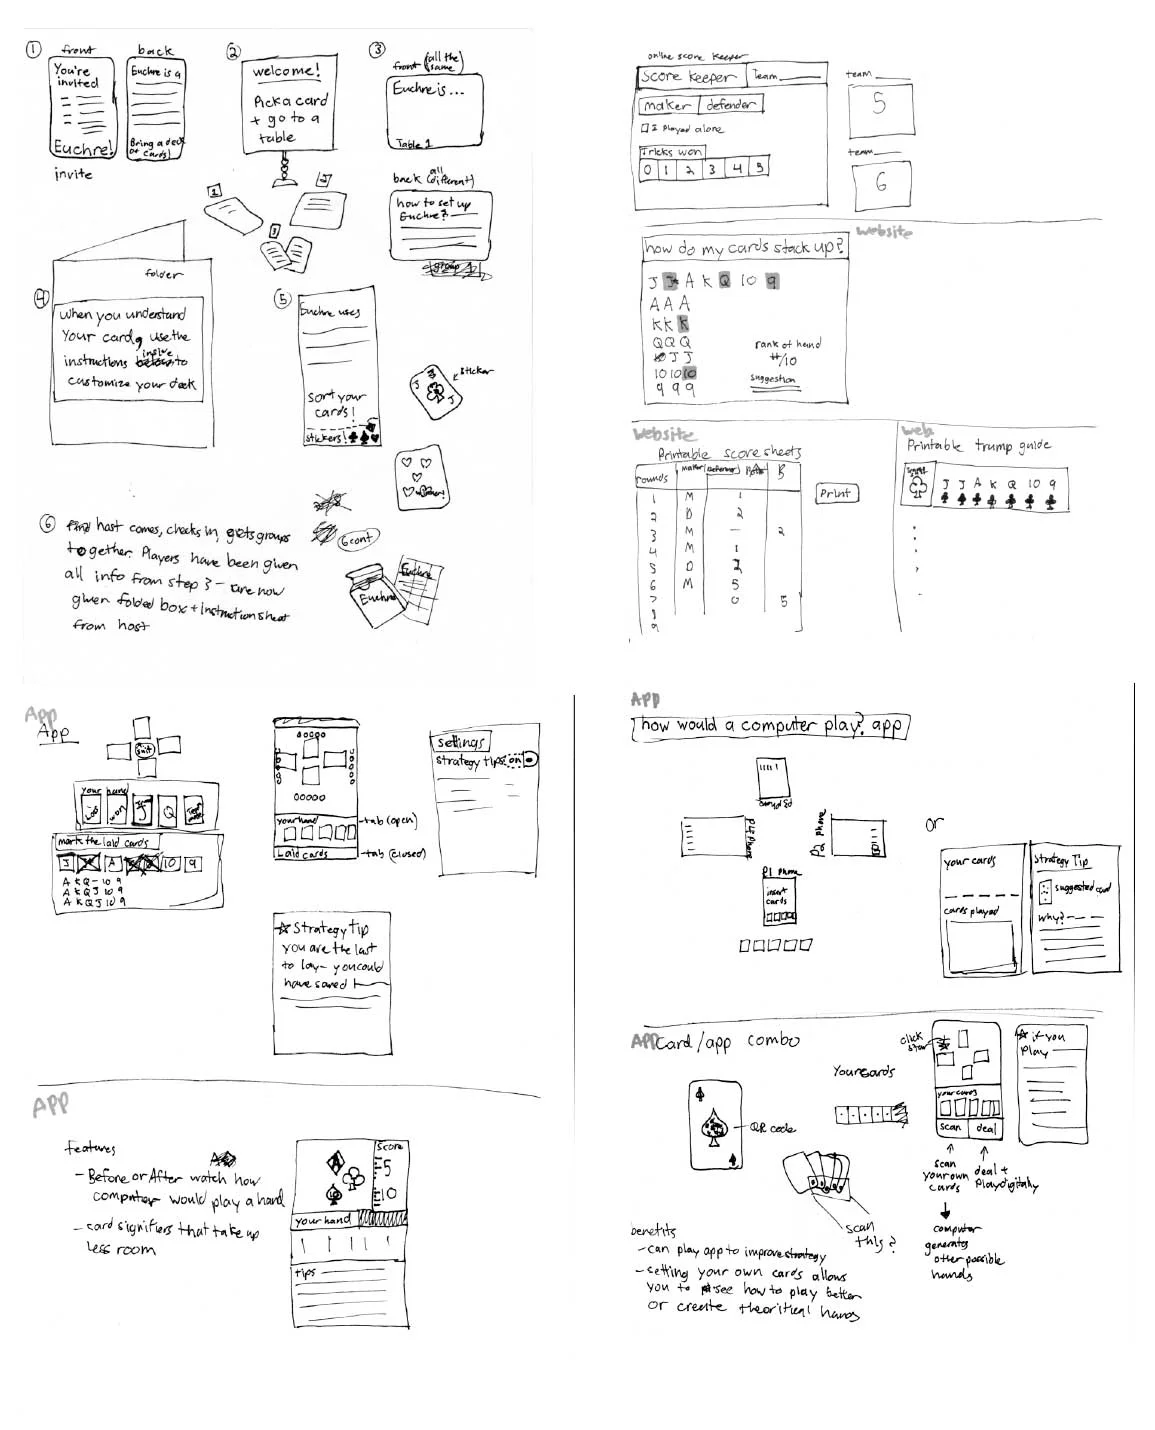 ① front back
You're
invited
Euchre!
invite
Euchre is a
Bring a deck
of cards!
②
welcome!
Pick a card
+ go to a
table
1
2
3
③
front (all the
same)
Euchre is...
Table 1
back (all
different)
how to set up
Euchre?
④
folder
When you understand
your card, use the
instructions inside to
customize your deck
⑤
Euchre uses
sort your
cards!
stickers!
sticker
J
J
⑥ host comes, checks in, gets groups
together. Players have been given
all info from step 3 - are now
given folded box + instruction sheet
from host
6 cont
Euchre
Euchre
online score keeper
Score keeper Team
maker defender
I played alone
Tricks won
0 1 2 3 4 5
team
5
team
6
website
how do my cards stack up?
J J A K Q 10 9
A A A
K K K
Q Q Q
J J
10 10 10
9 9 9
rank of hand
#/10
suggestion
website
Printable score sheets
rounds Maker Defender B
1 M 1
2 D 2
3 M — 2
4 M 1
5 D 2
6 M 5
7 0 5
8
9
Print
web
Printable trump guide
J J A K Q 10 9
App
App
suit
your hand
Q
mark the laid cards
J A 10 9
A K Q - 10 9
A K Q J 10 9
A K Q J 10 9
your hand
Laid cards
tab (open)
tab (closed)
settings
strategy tips: on
☆ Strategy Tip
you are the last
to lay - you could
have saved
APP
features
- Before or After watch how
computer would play a hand
- card signifiers that take up
less room
A
Score
5
10
your hand
tips
APP
how would a computer play? app
P3 phone
P4 phone
P2 phone
P1 phone
insert
cards
or
your cards
cards played
Strategy Tip
suggested card
why?
APP Card/app combo
QR code
Your cards
scan
this?
click
star
your cards
scan deal
scan
your own
cards
deal +
play digitally
computer
generates
other possible
hands
☆ if you
play
benefits
- can play app to improve strategy
- setting your own cards allows
you to see how to play better
or create theoritical hands